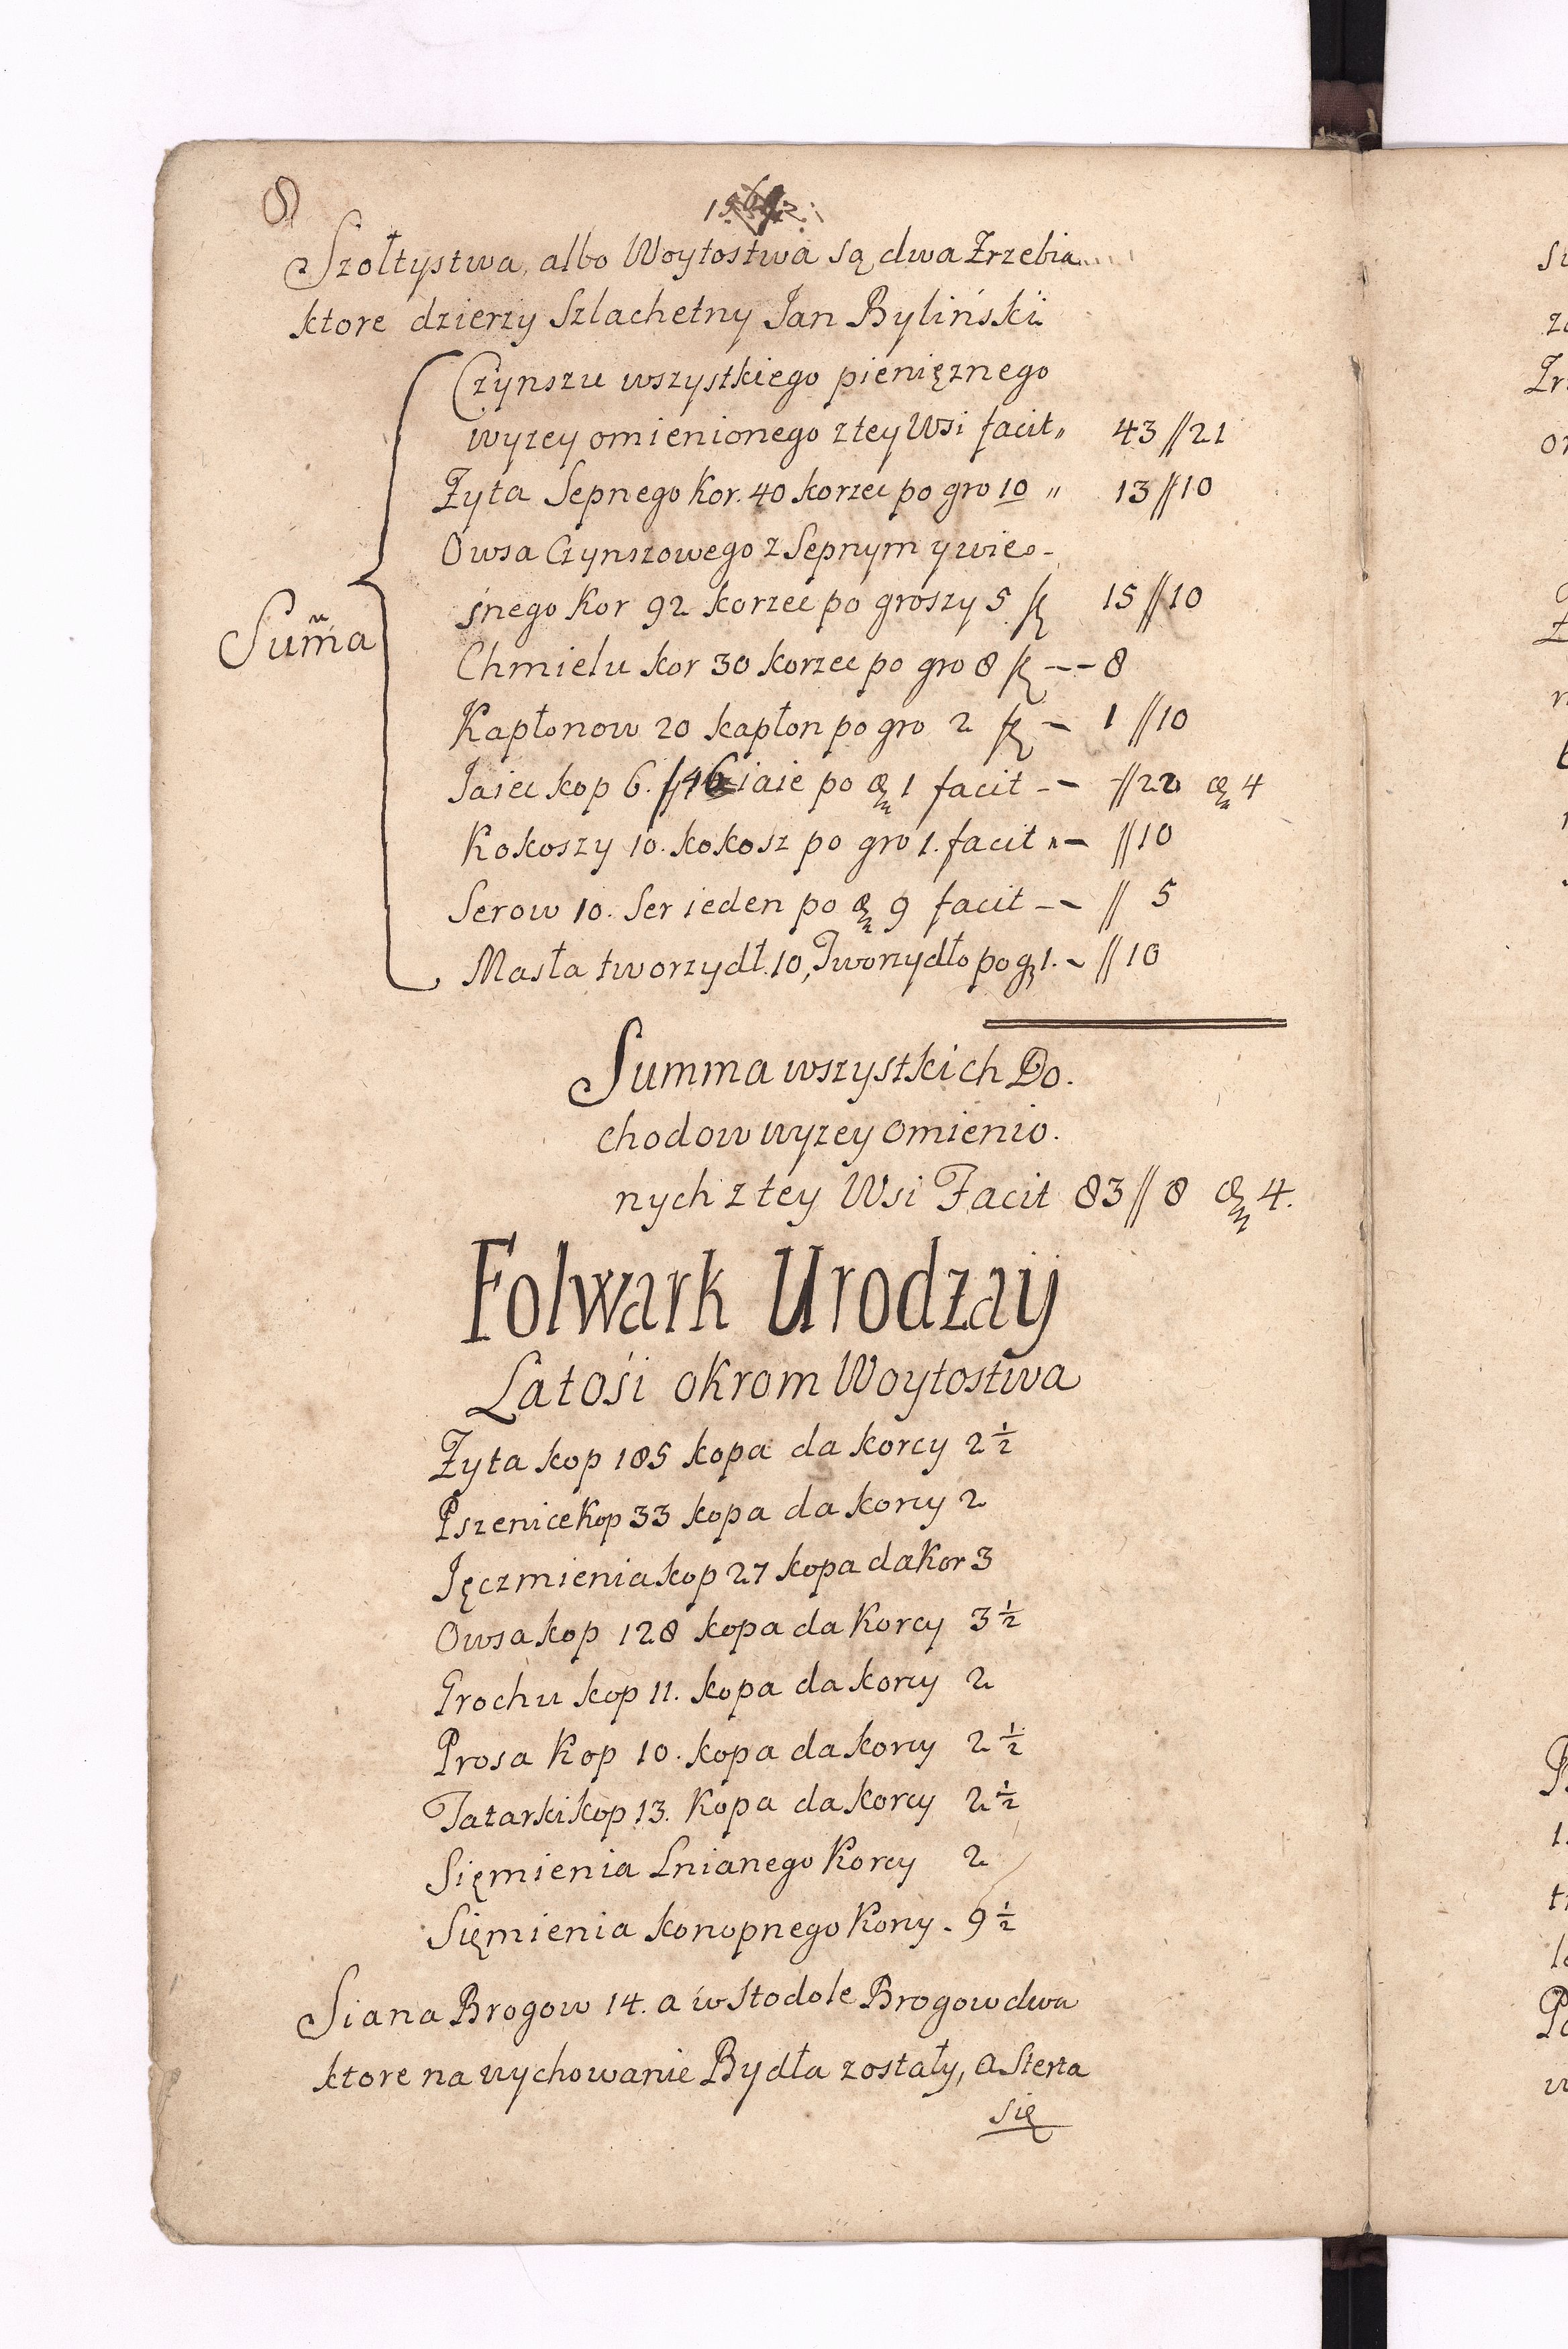 8
Szołtystwa, albo Woytostwa są dwa Zrzebia
ktore dzierzy Szlachetny Jan Byliński
Czynszu wszystkiego pieniężnego
wyzey omienionego z tey Wsi facit,, 43//21
Zyta Sepnego Kor. 40 korzec po gro 10 ,, 13//10
Owsa Czynszowego z Sepnym y wie-
śnego Kor 92 korzec po groszy 5 f 15//10
Sum̃a
Chmielu kor 30 korzec po gro 8 f -- 8
Kapłonow 20 kapłon po gro 2 f - 1//10
Jaiec kop 6.//46 iaie po 1 facit -- //22 4
Kokoszy 10. kokosz po gro 1. facit - //10
Serow 10. Ser ieden po 9 facit -- // 5
Masła tworzydł. 10, Tworzydło po g 1. - //10
Summa wszystkich Do.
chodow wyzey omienio.
nych z tey Wsi Facit 83//8 4.
Folwark Urodzaÿ
Latośi okrom Woytostwa
Zyta kop 185 kopa da korcy 2½
Pszenice Kop 33 kopa da korcy 2
Jęczmienia kop 27 kopa da Kor 3
Owsa kop 128 kopa da Korcy 3½
Grochu kop 11. kopa da korcy 2
Prosa Kop 10. kopa da korcy 2½
Tatarki kop 13. Kopa da korcy 2½
Sięmienia Lnianego Korcy 2
Sięmienia konopnego Korcy. 9½
Siana Brogow 14. a w stodole Brogow dwa
ktore na wychowanie Bydła zostały, a Sterta
się